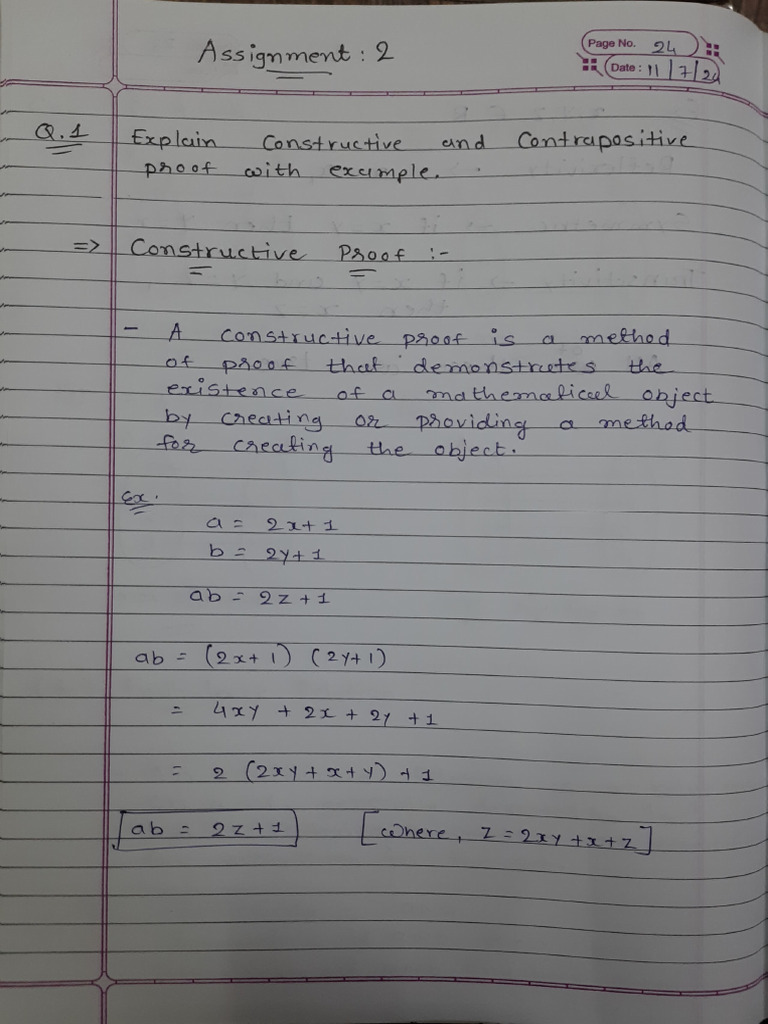 Assignment : 2
Page No. 24
Date : 11/7/24
Q.1 Explain Constructive and Contrapositive
proof with example.
=> Constructive Proof :-
- A constructive proof is a method
of proof that demonstrates the
existence of a mathematical object
by creating or providing a method
for creating the object.
Ex.
a = 2x+1
b = 2y+1
ab = 2z+1
ab = (2x+1) (2y+1)
= 4xy + 2x + 2y +1
= 2 (2xy+x+y) +1
ab = 2z+1 [where, z = 2xy +x+z]